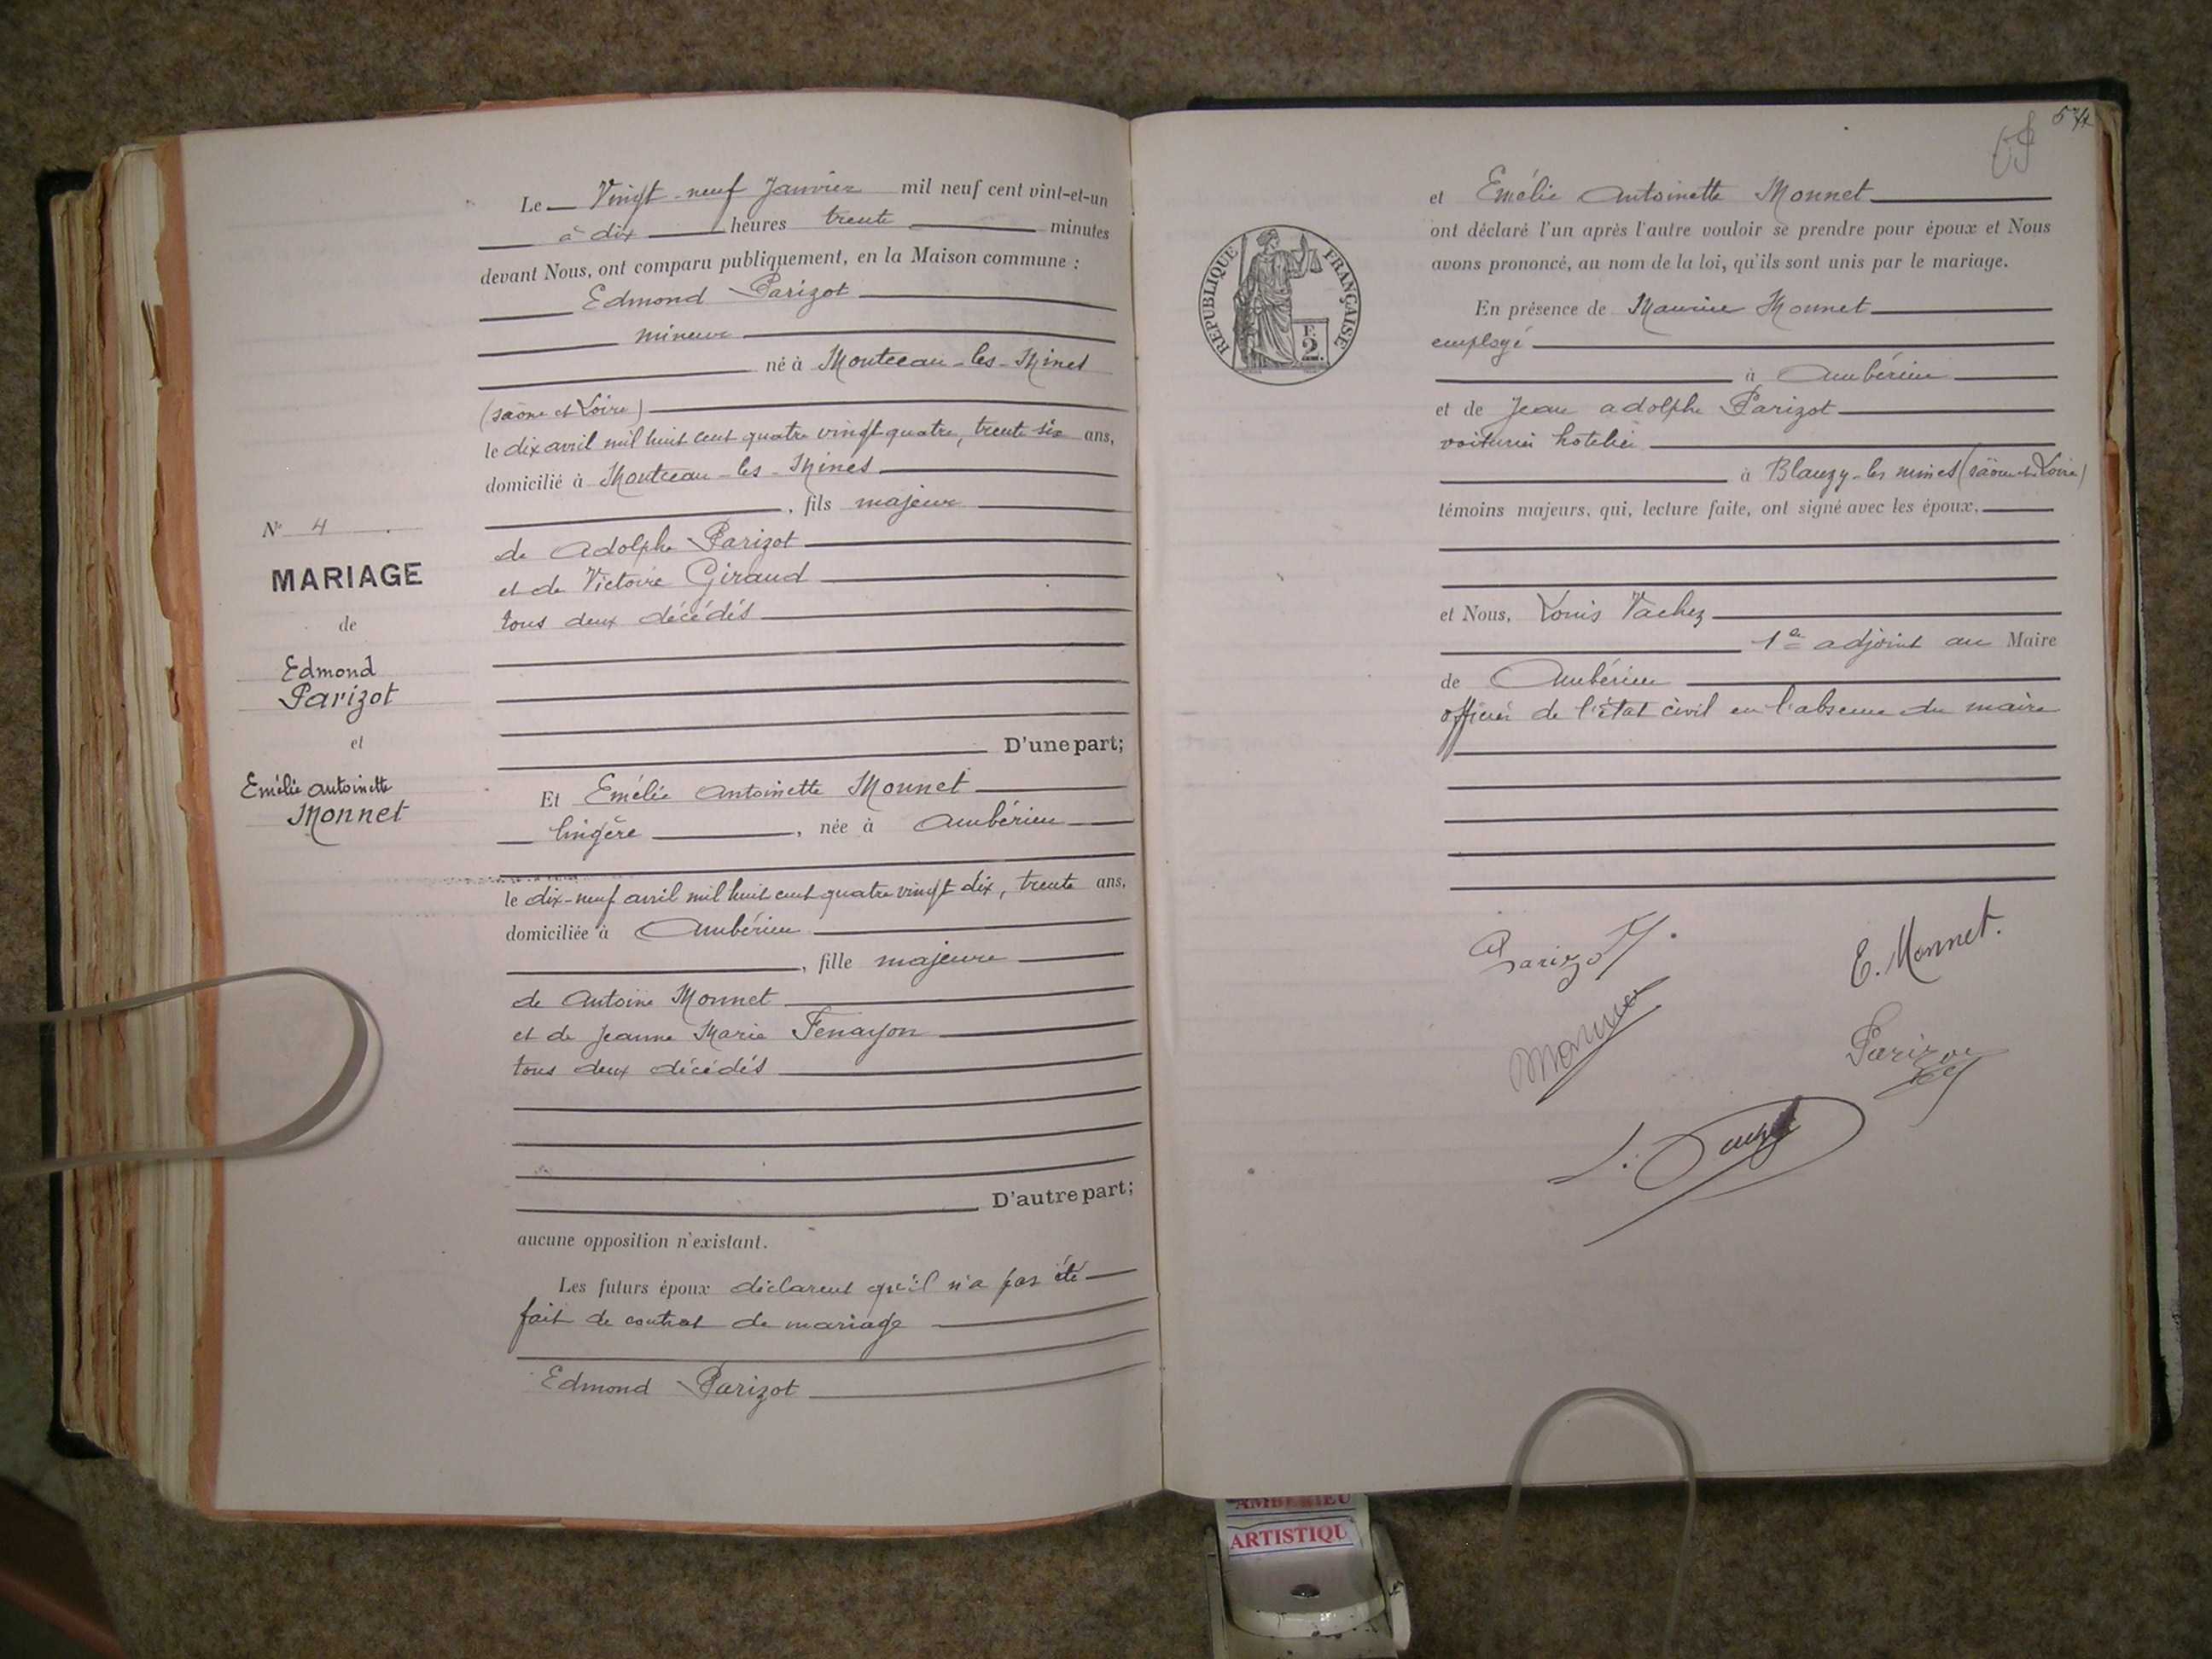 Le Vingt-neuf Janvier mil neuf cent vint-et-un
à dix heures trente minutes
devant Nous, ont comparu publiquement, en la Maison commune :
Edmond Parizot
mineur
né à Montceau-les-Mines
(saône et Loire)
le dix avril mil huit cent quatre vingt quatre, trente six ans,
domicilié à Montceau-les-Mines
, fils majeur
de Adolphe Parizot
et de Victoire Giraud
tous deux décédés
D'une part;
N° 4
MARIAGE
de
Edmond
Parizot
et
Emélie antoinette
Monnet
Et Emélie Antoinette Monnet
lingère , née à Ambérieu
le dix-neuf avril mil huit cent quatre vingt dix, trente ans,
domiciliée à Ambérieu
, fille majeure
de Antoine Monnet
et de Jeanne Marie Fenayon
tous deux décédés
D'autre part;
aucune opposition n'existant.
Les futurs époux déclarent qu'il n'a pas été
fait de contrat de mariage
Edmond Parizot
574
RÉPUBLIQUE FRANÇAISE
F.
2.
et Emélie Antoinette Monnet
ont déclaré l'un après l'autre vouloir se prendre pour époux et Nous
avons prononcé, au nom de la loi, qu'ils sont unis par le mariage.
En présence de Maurice Monnet
employé
à Ambérieu
et de Jean adolphe Parizot
voiturier hotelier
à Blanzy-les mines (saône et Loire)
témoins majeurs, qui, lecture faite, ont signé avec les époux,
et Nous, Louis Vachez
1er adjoint au Maire
de Ambérieu
officier de l'état civil en l'absence du maire
Parizot
E. Monnet.
Monnet
Parizot
AMBERIEU
ARTISTIQU